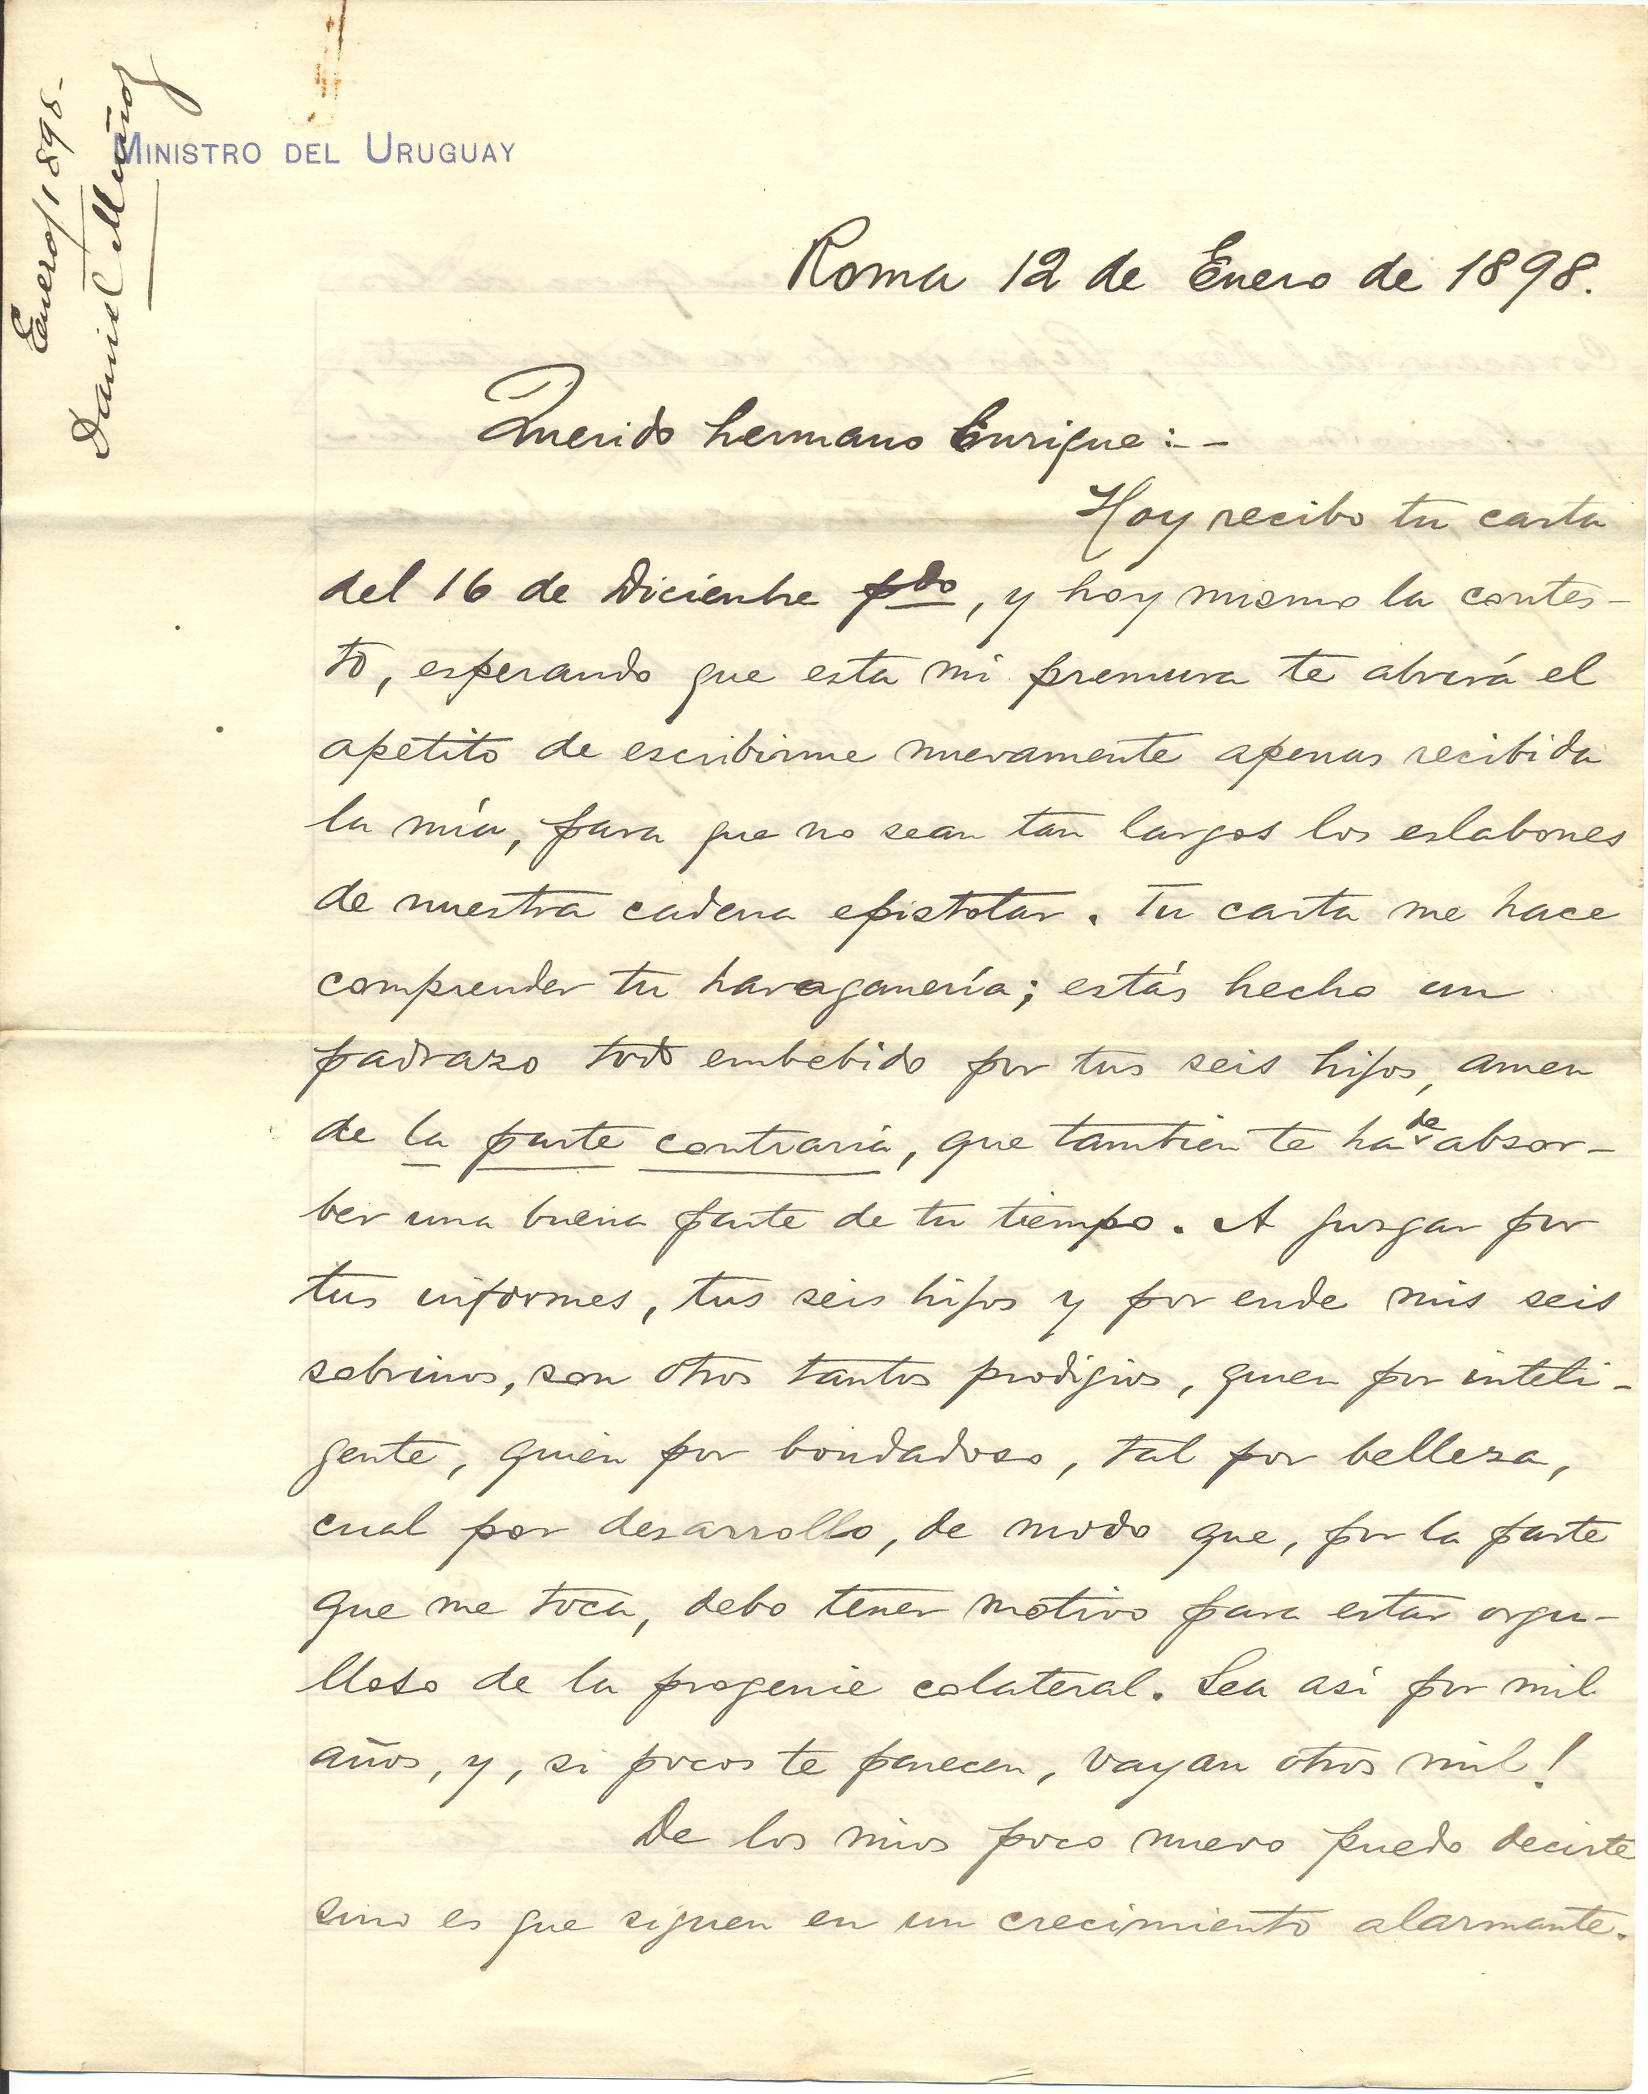 Enero/1898-
Daniel Muñoz
MINISTRO DEL URUGUAY
Roma 12 de Enero de 1898.
Querido hermano Enrique:--
Hoy recibo tu carta
del 16 de Diciembre pdo, y hoy mismo la contes-
to, esperando que esta mi premura te abrirá el
apetito de escribirme nuevamente apenas recibida
la mía, para que no sean tan largos los eslabones
de nuestra cadena epistolar. Tu carta me hace
comprender tu haraganería; estás hecho un
padrazo todo embebido por tus seis hijos, amen
de la parte contraria, que tambien te ha de absor-
ber una buena parte de tu tiempo. A jusgar por
tus informes, tus seis hijos y por ende mis seis
sobrinos, son otros tantos prodigios, quien por inteli-
gente, quién por bondadoso, tal por bellesa,
cual por desarrollo, de modo que, por la parte
que me toca, debo tener motivo para estar orgu-
lloso de la progenie colateral. Sea asi por mil
años, y, si pocos te parecen, vayan otros mil!
De los mios poco nuevo puedo decirte
sino es que siguen en un crecimiento alarmante.